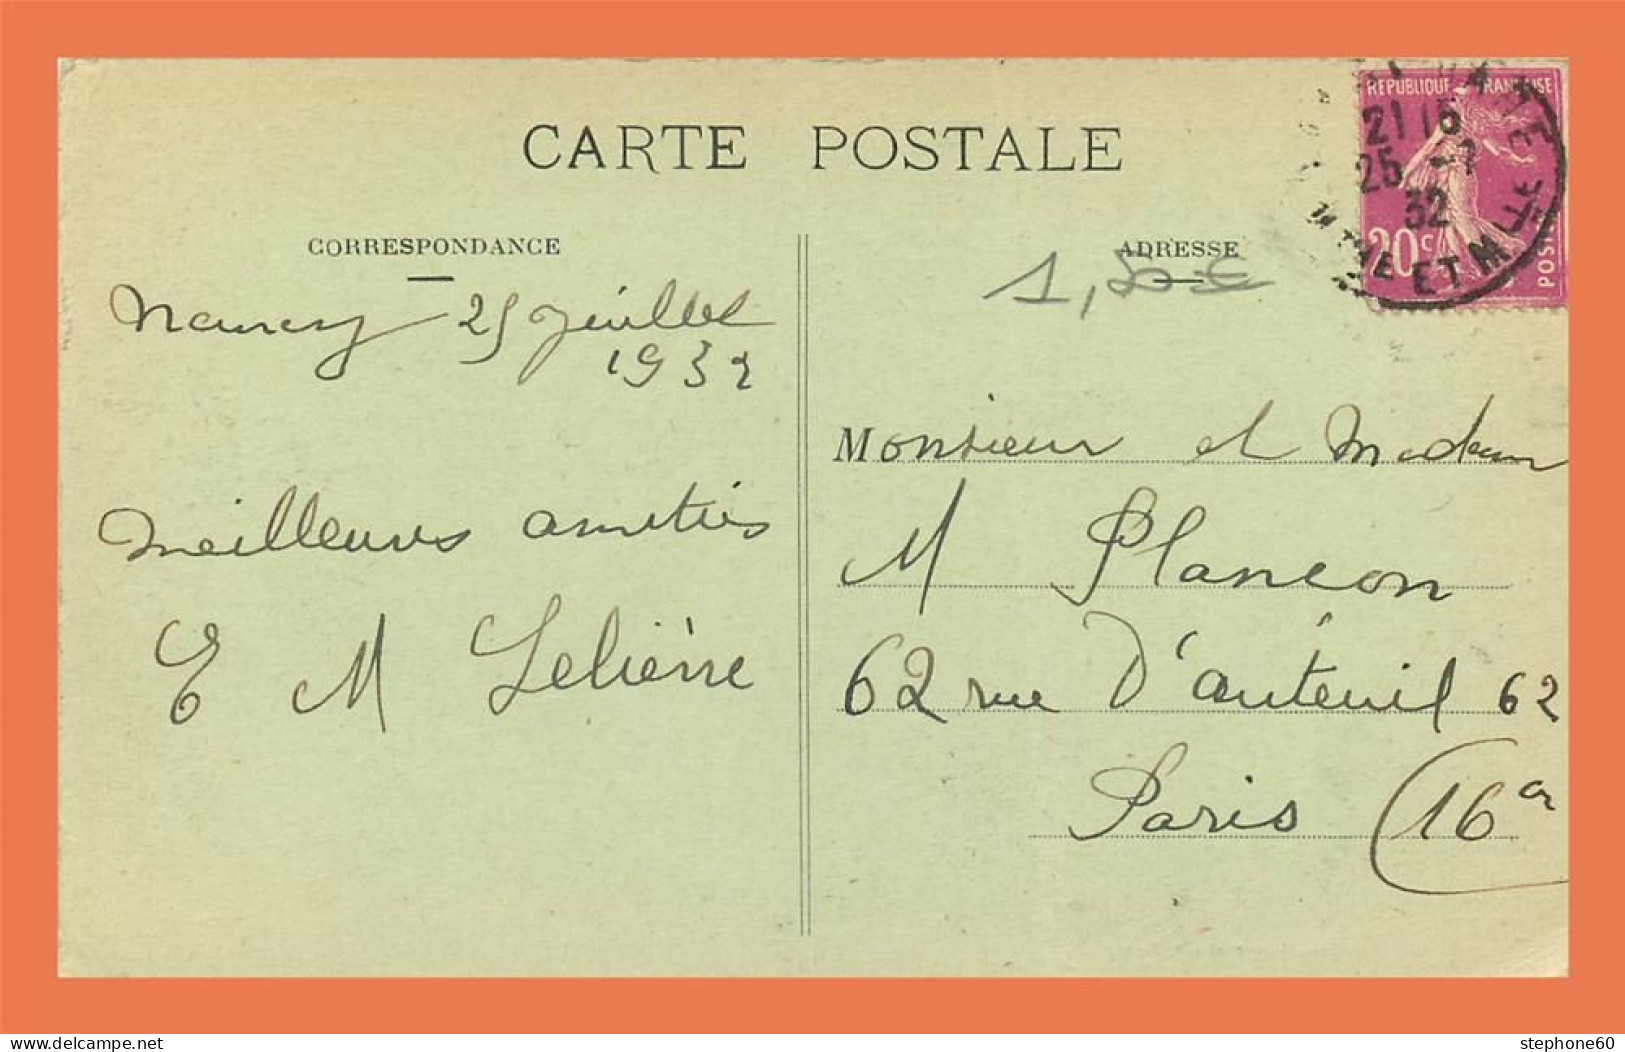 CARTE POSTALE
CORRESPONDANCE
Nancy 25 Juillet
1932
meilleures amitiés
E M Lelièvre
ADRESSE
1,50€
REPUBLIQUE FRANCAISE
20c
POSTES
21 15
25 -7
32
MTHE ET MLLE
Monsieur et Madam
M Plancon
62 rue D'auteuil 62
Paris (16er
www.delcampe.net
stephone60